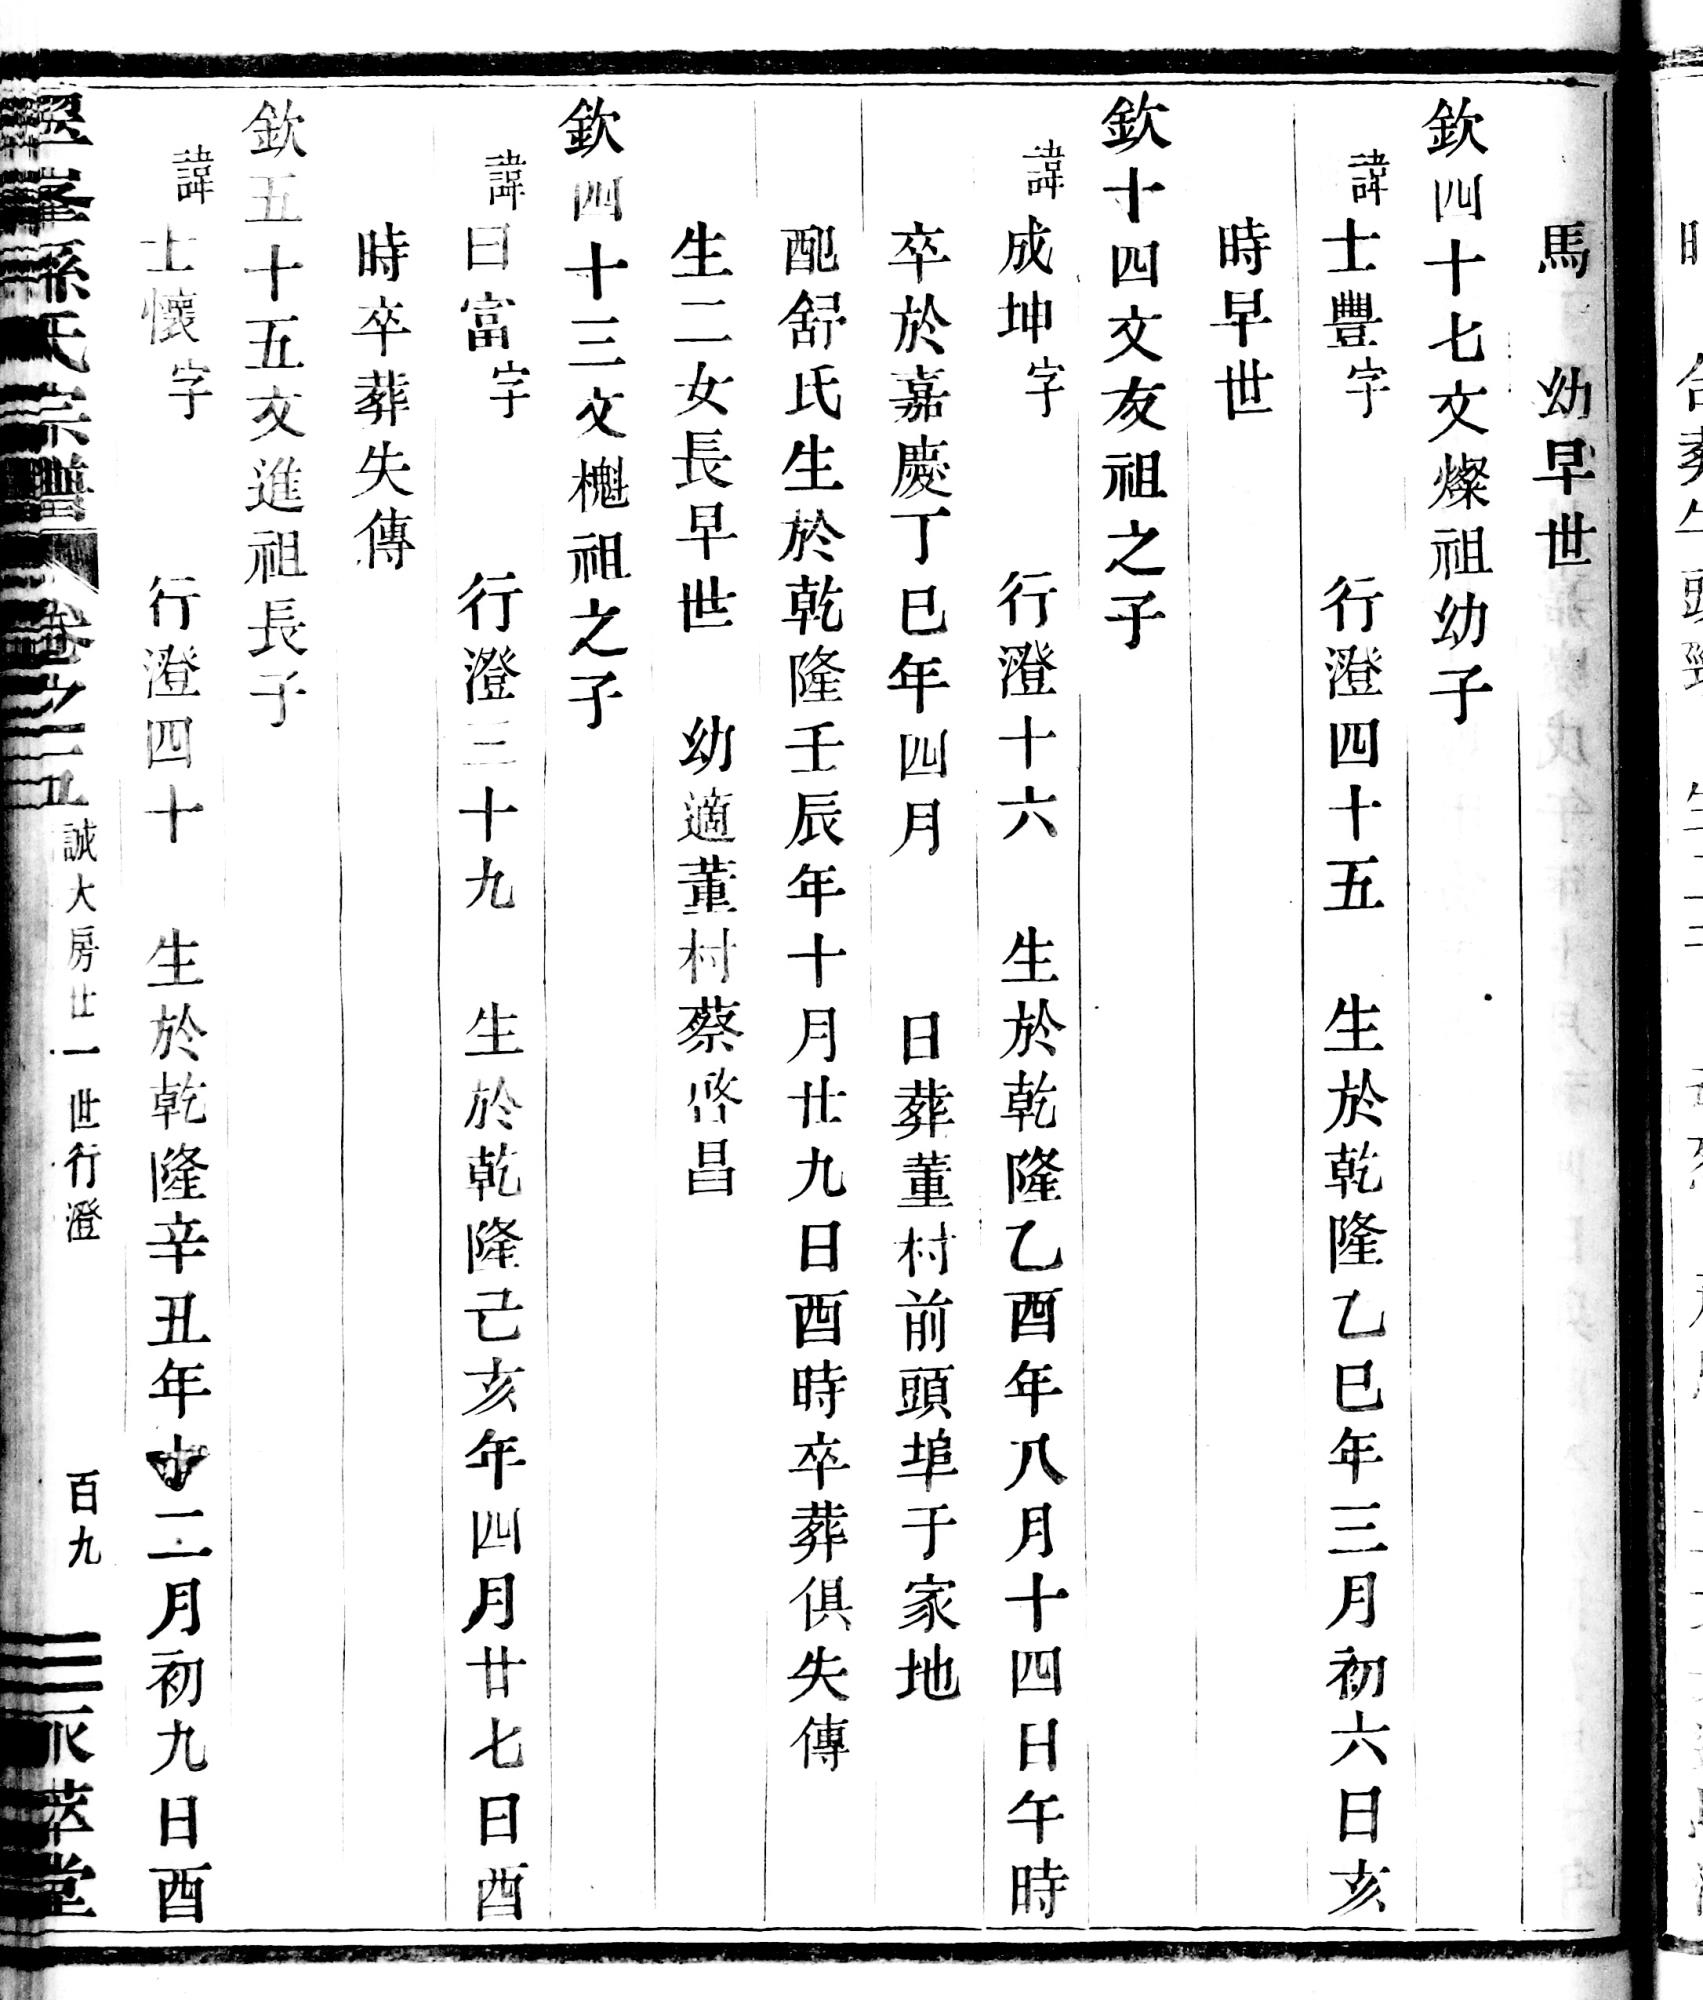 馬　幼早世
欽四十七文燦祖幼子
諱士豐字　行澄四十五　生於乾隆乙巳年三月初六日亥
時早世
欽十四文友祖之子
諱成坤字　行澄十六　生於乾隆乙酉年八月十四日午時
卒於嘉慶丁巳年四月　日葬董村前頭埠于家地
配舒氏生於乾隆壬辰年十月廿九日酉時卒葬俱失傳
生二女長早世　幼適董村蔡啓昌
欽四十三文槐祖之子
諱曰富字　行澄三十九　生於乾隆己亥年四月廿七日酉
時卒葬失傳
欽五十五文進祖長子
諱士懷字　行澄四十　生於乾隆辛丑年十二月初九日酉
孫氏宗譜　卷之二五　誠大房廿一世行澄　百九　萃堂